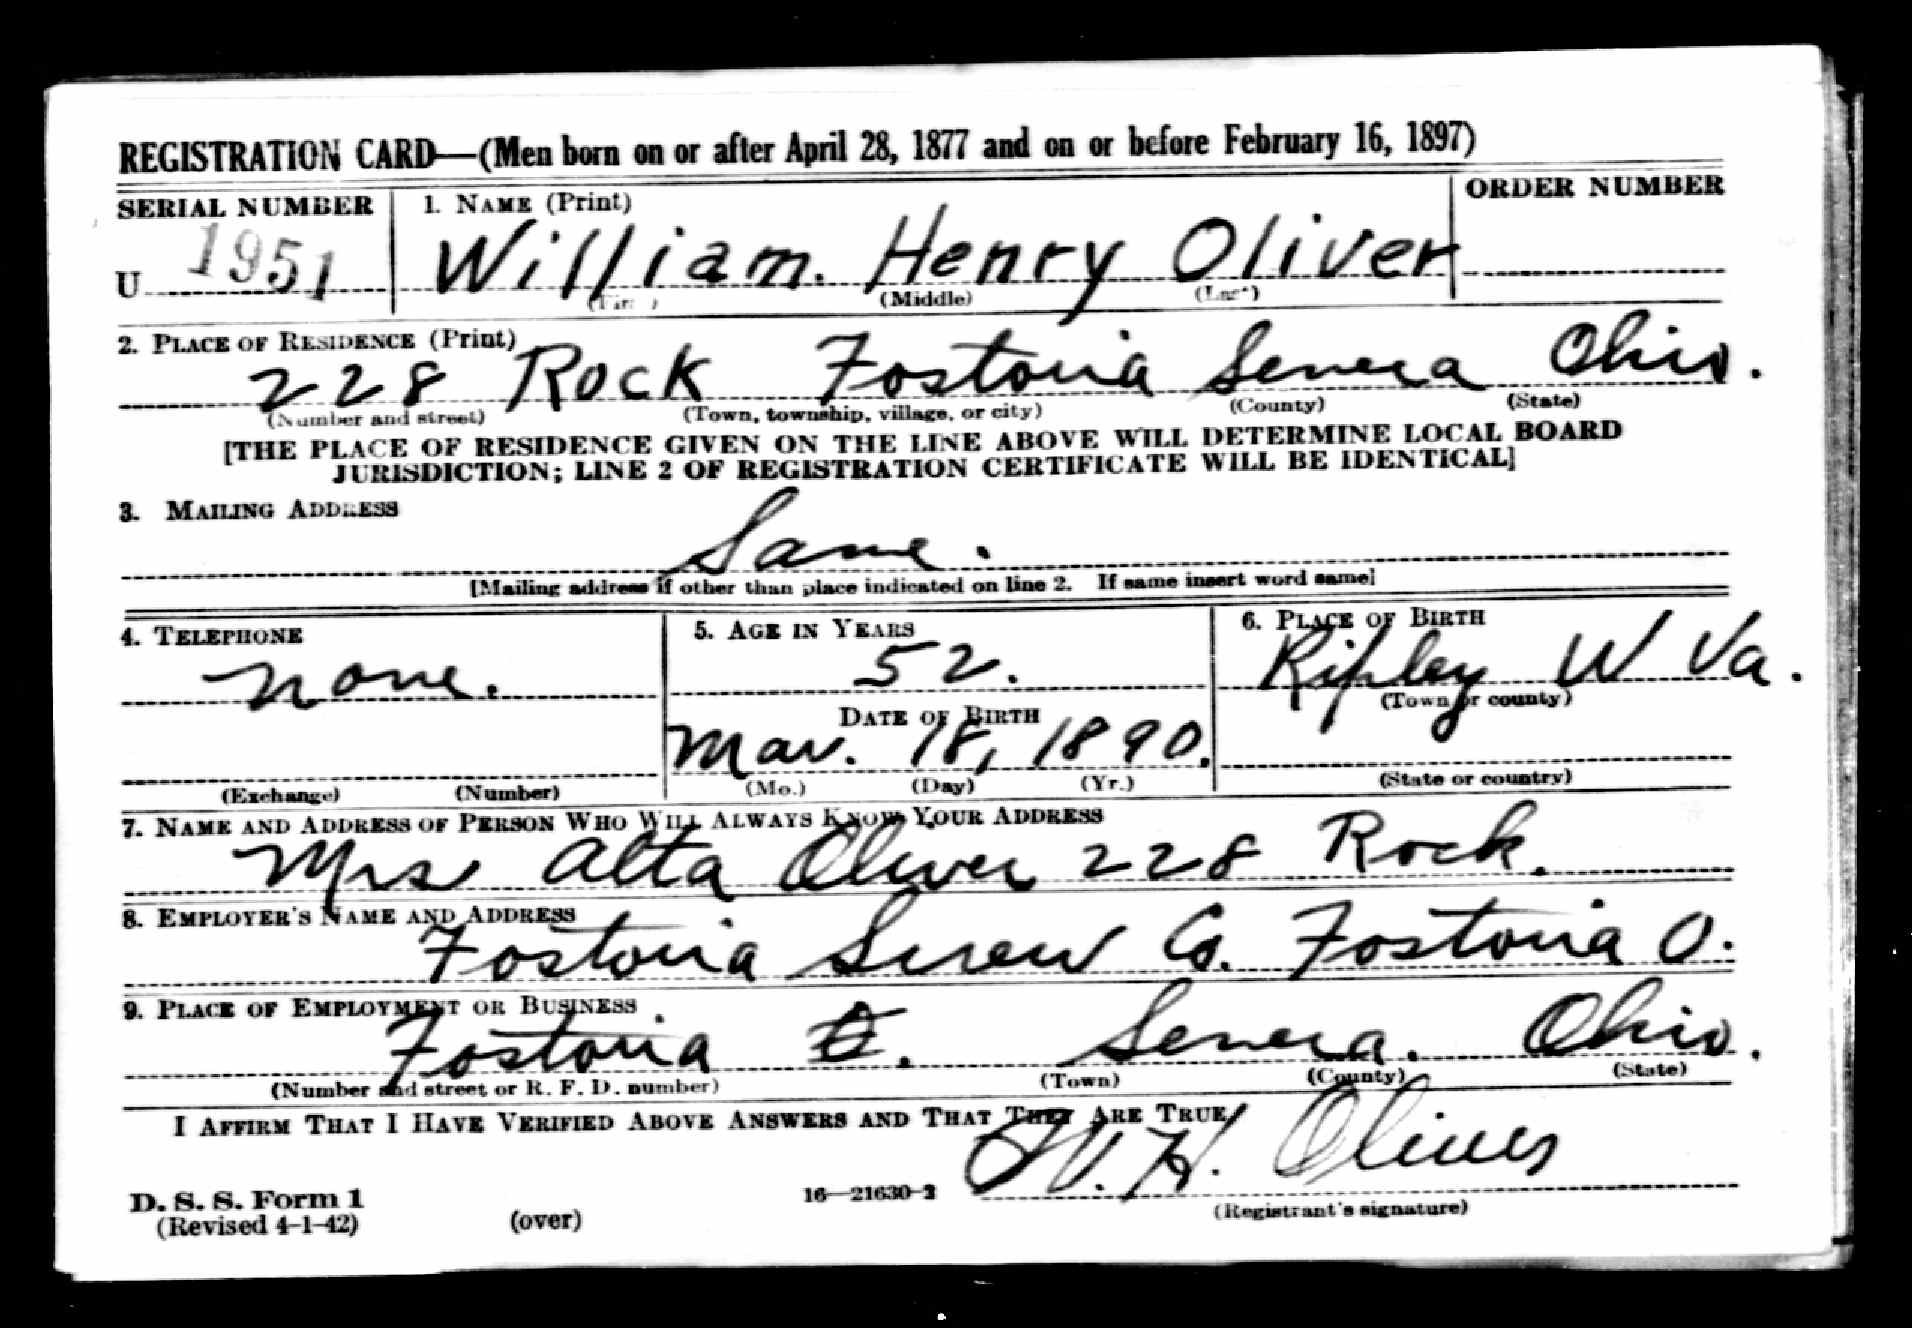 REGISTRATION CARD—(Men born on or after April 28, 1877 and on or before February 16, 1897)
SERIAL NUMBER
1. NAME (Print)
ORDER NUMBER
U 1951
William. Henry Oliver
(Middle) (Last)
2. PLACE OF RESIDENCE (Print)
228 Rock Fostoria Seneca Ohio.
(Number and street) (Town, township, village, or city) (County) (State)
[THE PLACE OF RESIDENCE GIVEN ON THE LINE ABOVE WILL DETERMINE LOCAL BOARD
JURISDICTION; LINE 2 OF REGISTRATION CERTIFICATE WILL BE IDENTICAL]
3. MAILING ADDRESS
Same.
[Mailing address if other than place indicated on line 2. If same insert word same]
4. TELEPHONE
none.
(Exchange) (Number)
5. AGE IN YEARS
52.
DATE OF BIRTH
Mar. 18, 1890.
(Mo.) (Day) (Yr.)
6. PLACE OF BIRTH
Ripley W Va.
(Town or county)
(State or country)
7. NAME AND ADDRESS OF PERSON WHO WILL ALWAYS KNOW YOUR ADDRESS
Mrs Alta Oliver 228 Rock.
8. EMPLOYER'S NAME AND ADDRESS
Fostoria Screw Co. Fostoria O.
9. PLACE OF EMPLOYMENT OR BUSINESS
Fostoria O. Seneca. Ohio.
(Number and street or R. F. D. number) (Town) (County) (State)
I AFFIRM THAT I HAVE VERIFIED ABOVE ANSWERS AND THAT THEY ARE TRUE
W. H. Oliver
D. S. S. Form 1
(Revised 4-1-42)
(over)
16—21630-2
(Registrant's signature)